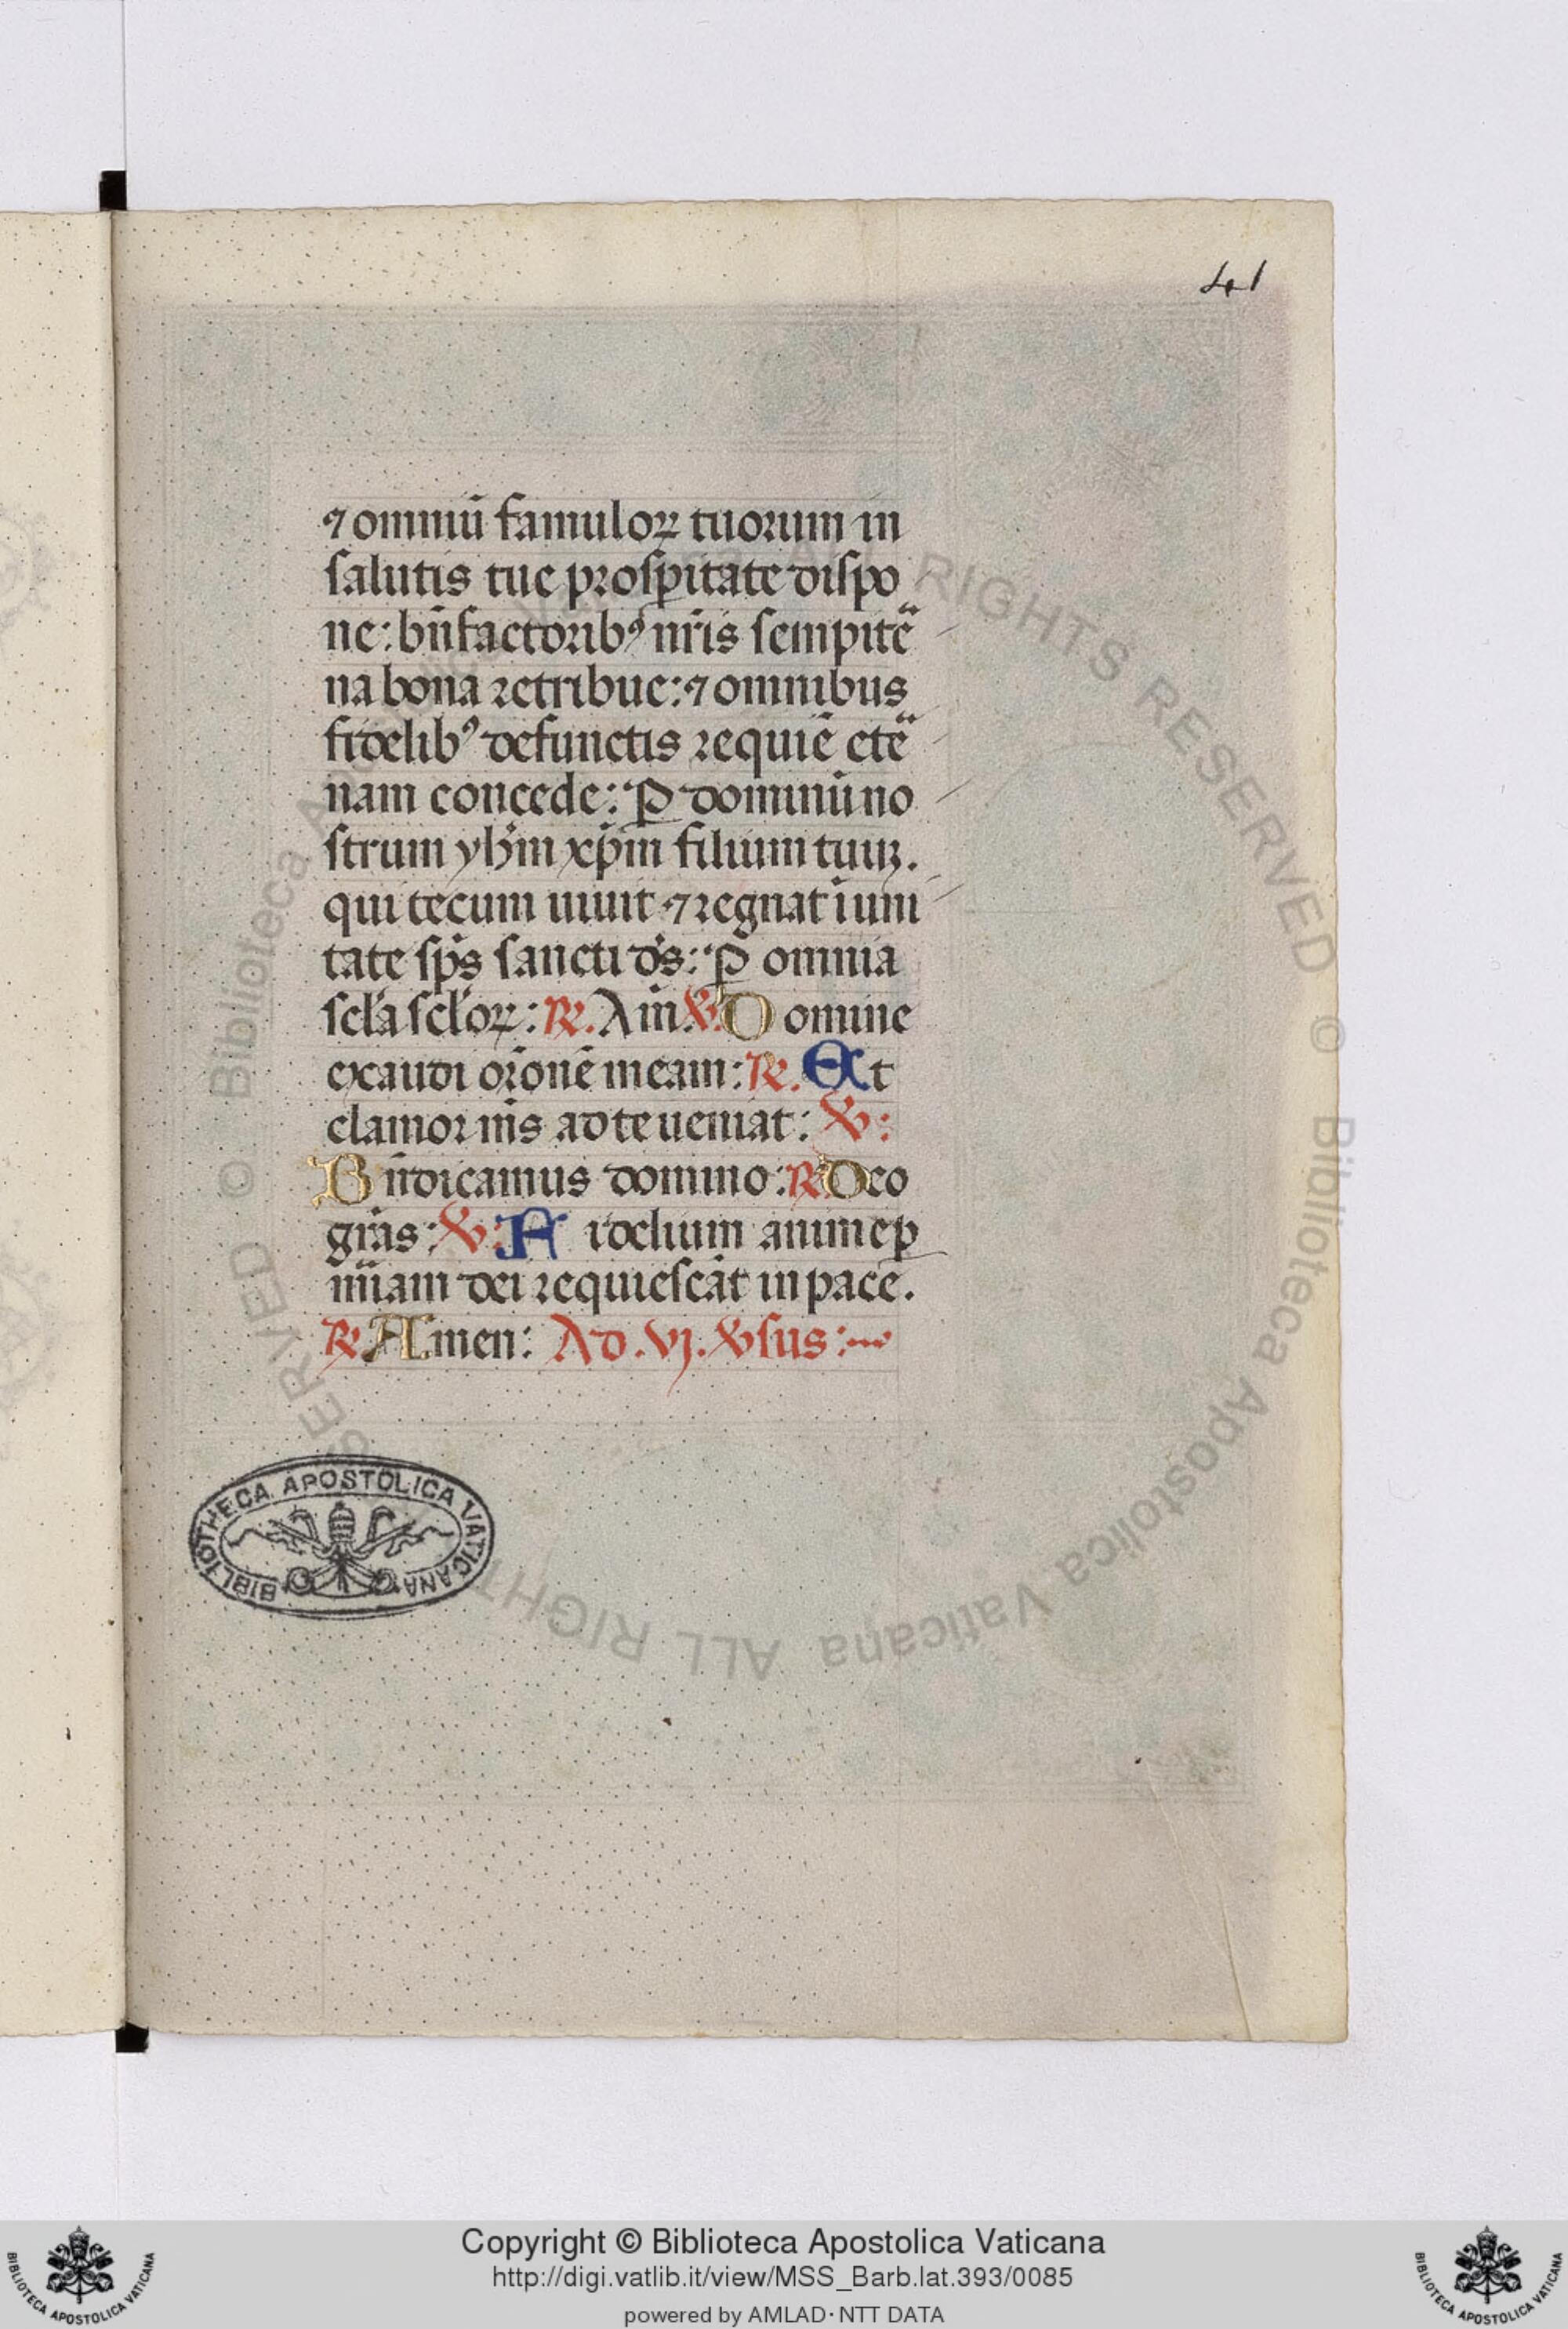 41
⁊ omniū famuloꝝ tuorum in
salutis tue prosꝑitate dispo
ne: bn̄factoribꝰ nr̄is sempitē
na bona retribue: ⁊ omnibus
fidelibꝰ defunctis requiē etē
nam concede: Ꝑ dominū no
strum yh̄m xp̄m filium tuuꝫ.
qui tecum uiuit ⁊ regnat ī uni
tate sp̄s sancti d̄s: Ꝑ omnia
scl̄a scl̄oꝝ: ℞. Am̄ ℣. Domine
exaudi or̄onē meam: ℞. Et
clamor m̄s ad te ueniat: ℣:
Bn̄dicamus domino: ℞ Deo
gr̄as: ℣: Fidelium anime ꝑ
mīam dei requiescāt in pace.
℞. Amen: Ad .vj. ℣sus:
BIBLIOTHECA APOSTOLICA VATICANA
© Biblioteca Apostolica Vaticana ALL RIGHTS RESERVED © Biblioteca Apostolica Vaticana ALL RIGHTS RESERVED
Copyright © Biblioteca Apostolica Vaticana
http://digi.vatlib.it/view/MSS_Barb.lat.393/0085
powered by AMLAD·NTT DATA
BIBLIOTECA APOSTOLICA VATICANA
BIBLIOTECA APOSTOLICA VATICANA